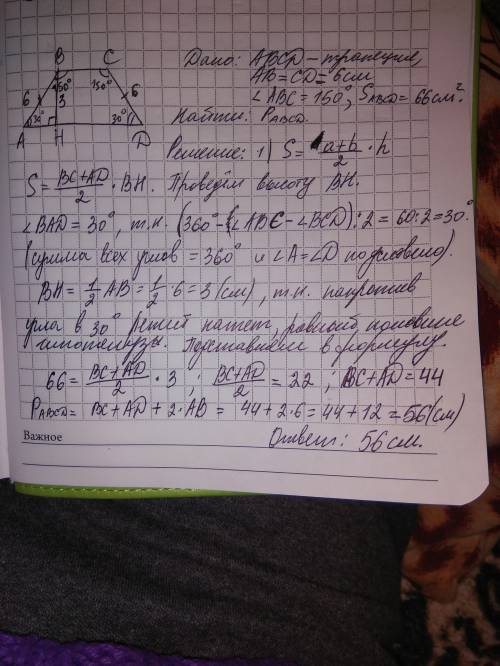 B C
Дано: ABCD - трапеция,
AB = CD = 6 см
∠ABC = 150°, S ABCD = 66 см².
Найти: P ABCD.
6 150° 150° 6
3
30° 30°
A H D
Решение: 1) S = a+b/2 · h
S = BC+AD/2 · BH. Проведём высоту BH.
∠BAD = 30°, т.к. (360° - (∠ABC - ∠BCD)) : 2 = 60 : 2 = 30°
(сумма всех углов = 360° и ∠A = ∠D по условию).
BH = 1/2 AB = 1/2 · 6 = 3 (см), т.к. напротив
угла в 30° лежит катет, равный половине
гипотенузы. Подставляем в формулу.
66 = BC+AD/2 · 3 ; BC+AD/2 = 22 ; BC+AD = 44
P ABCD = BC + AD + 2 · AB = 44 + 2 · 6 = 44 + 12 = 56 (см)
Важное
Ответ: 56 см.